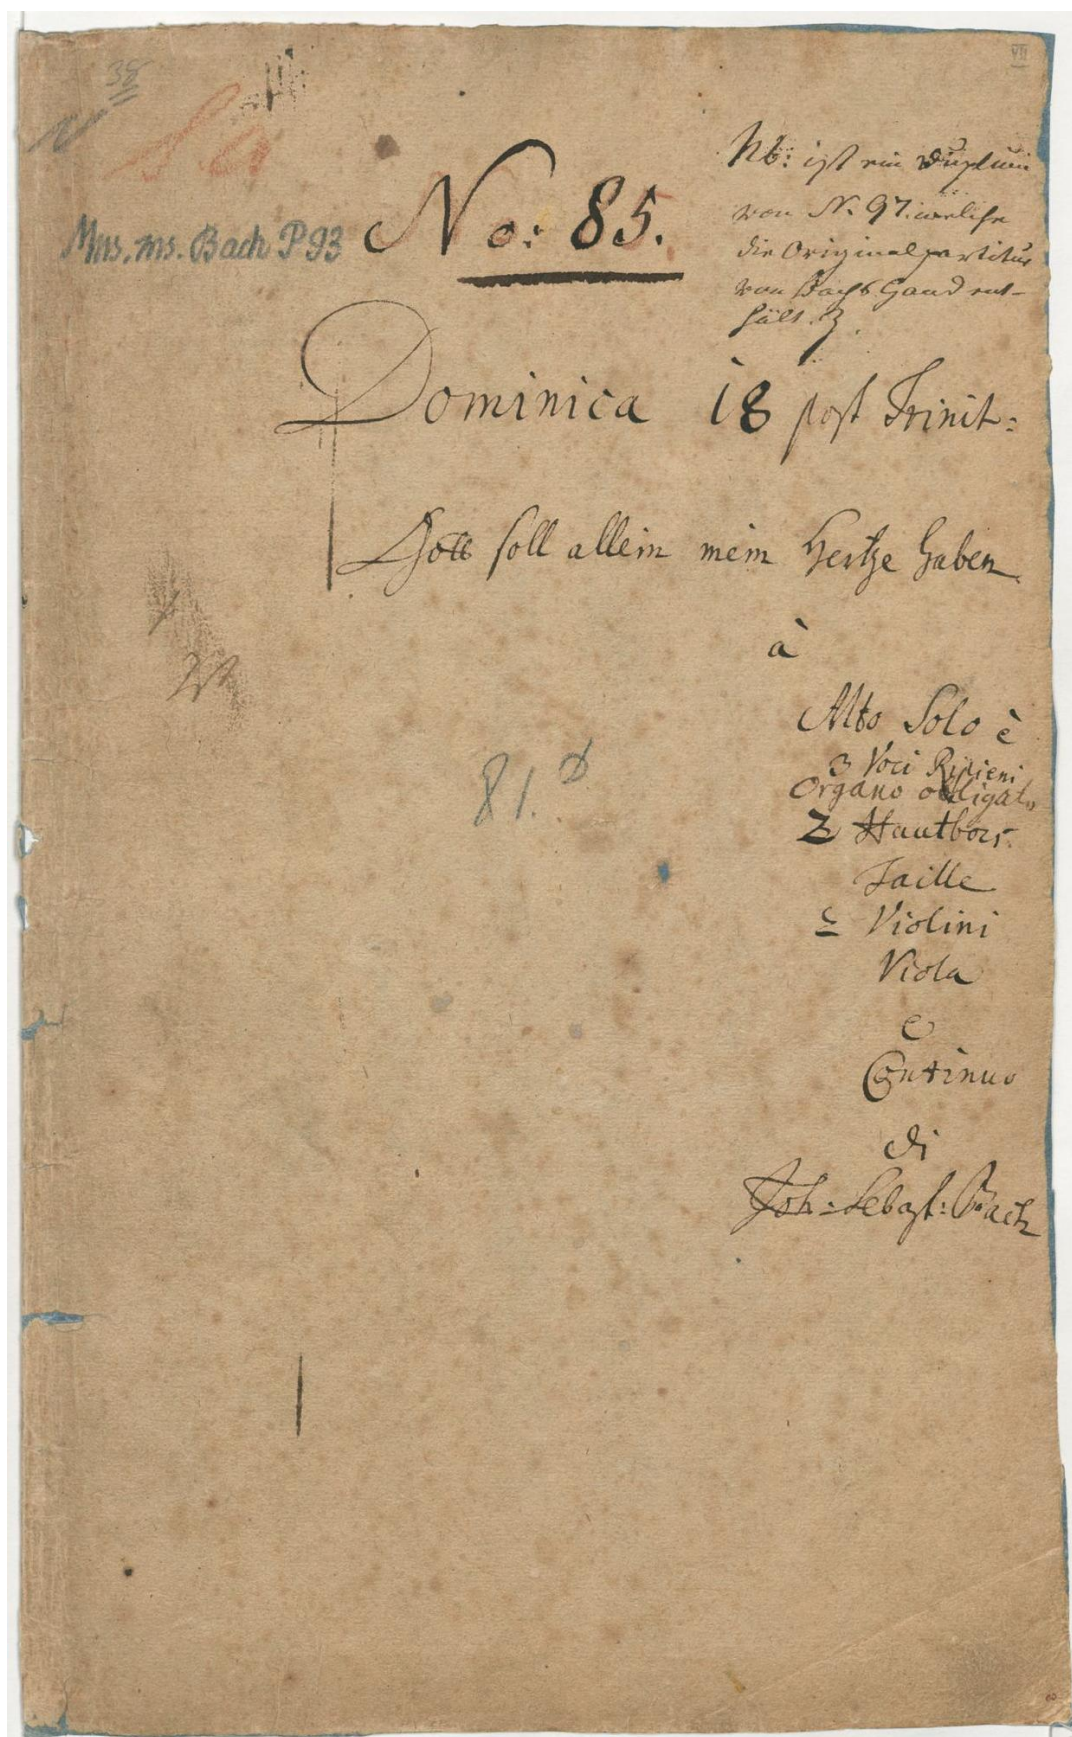 38
VII
Mus. ms. Bach P 93
No: 85.
Nb: ist ein Duplum
von N. 97. welche
die Originalpartitur
von Bachs Hand ent-
hält. Z.
Dominica 18 post Trinit:
Gott soll allein mein Hertze haben
à
Alto Solo è
3 Voci Ripieni
Organo obligato
2 Hautbois.
Taille
2 Violini
Viola
e
Continuo
di
Joh: Sebast: Bach
81.